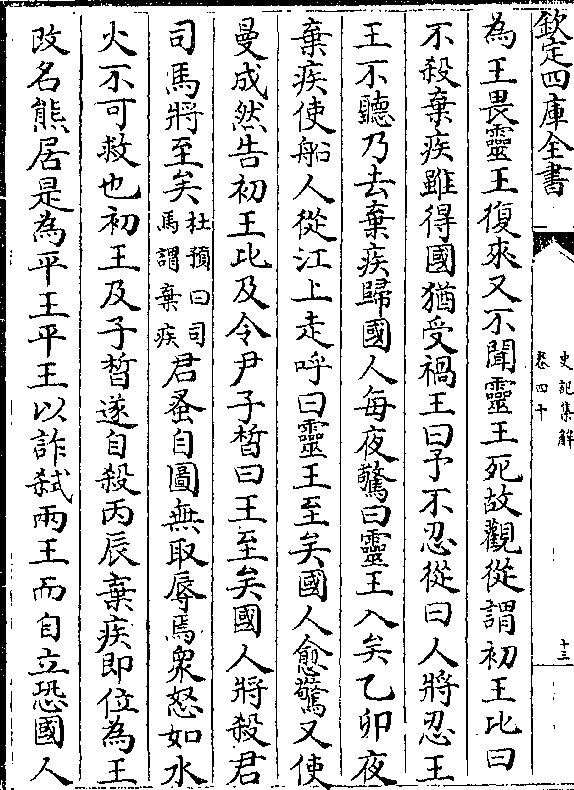 欽定四庫全書
史記集解
卷四十
十三
為王畏靈王復來又不聞靈王死故觀從謂初王比曰
不殺棄疾雖得國猶受禍王曰予不忍從曰人將忍王
王不聽乃去棄疾歸國人每夜驚曰靈王入矣乙卯夜
棄疾使船人從江上走呼曰靈王至矣國人愈驚又使
曼成然告初王比及令尹子晳曰王至矣國人將殺君
司馬將至矣杜預曰司馬謂棄疾君蚤自圖無取辱焉衆怒如水
火不可救也初王及子晳遂自殺丙辰棄疾即位為王
改名熊居是為平王平王以詐弑兩王而自立恐國人